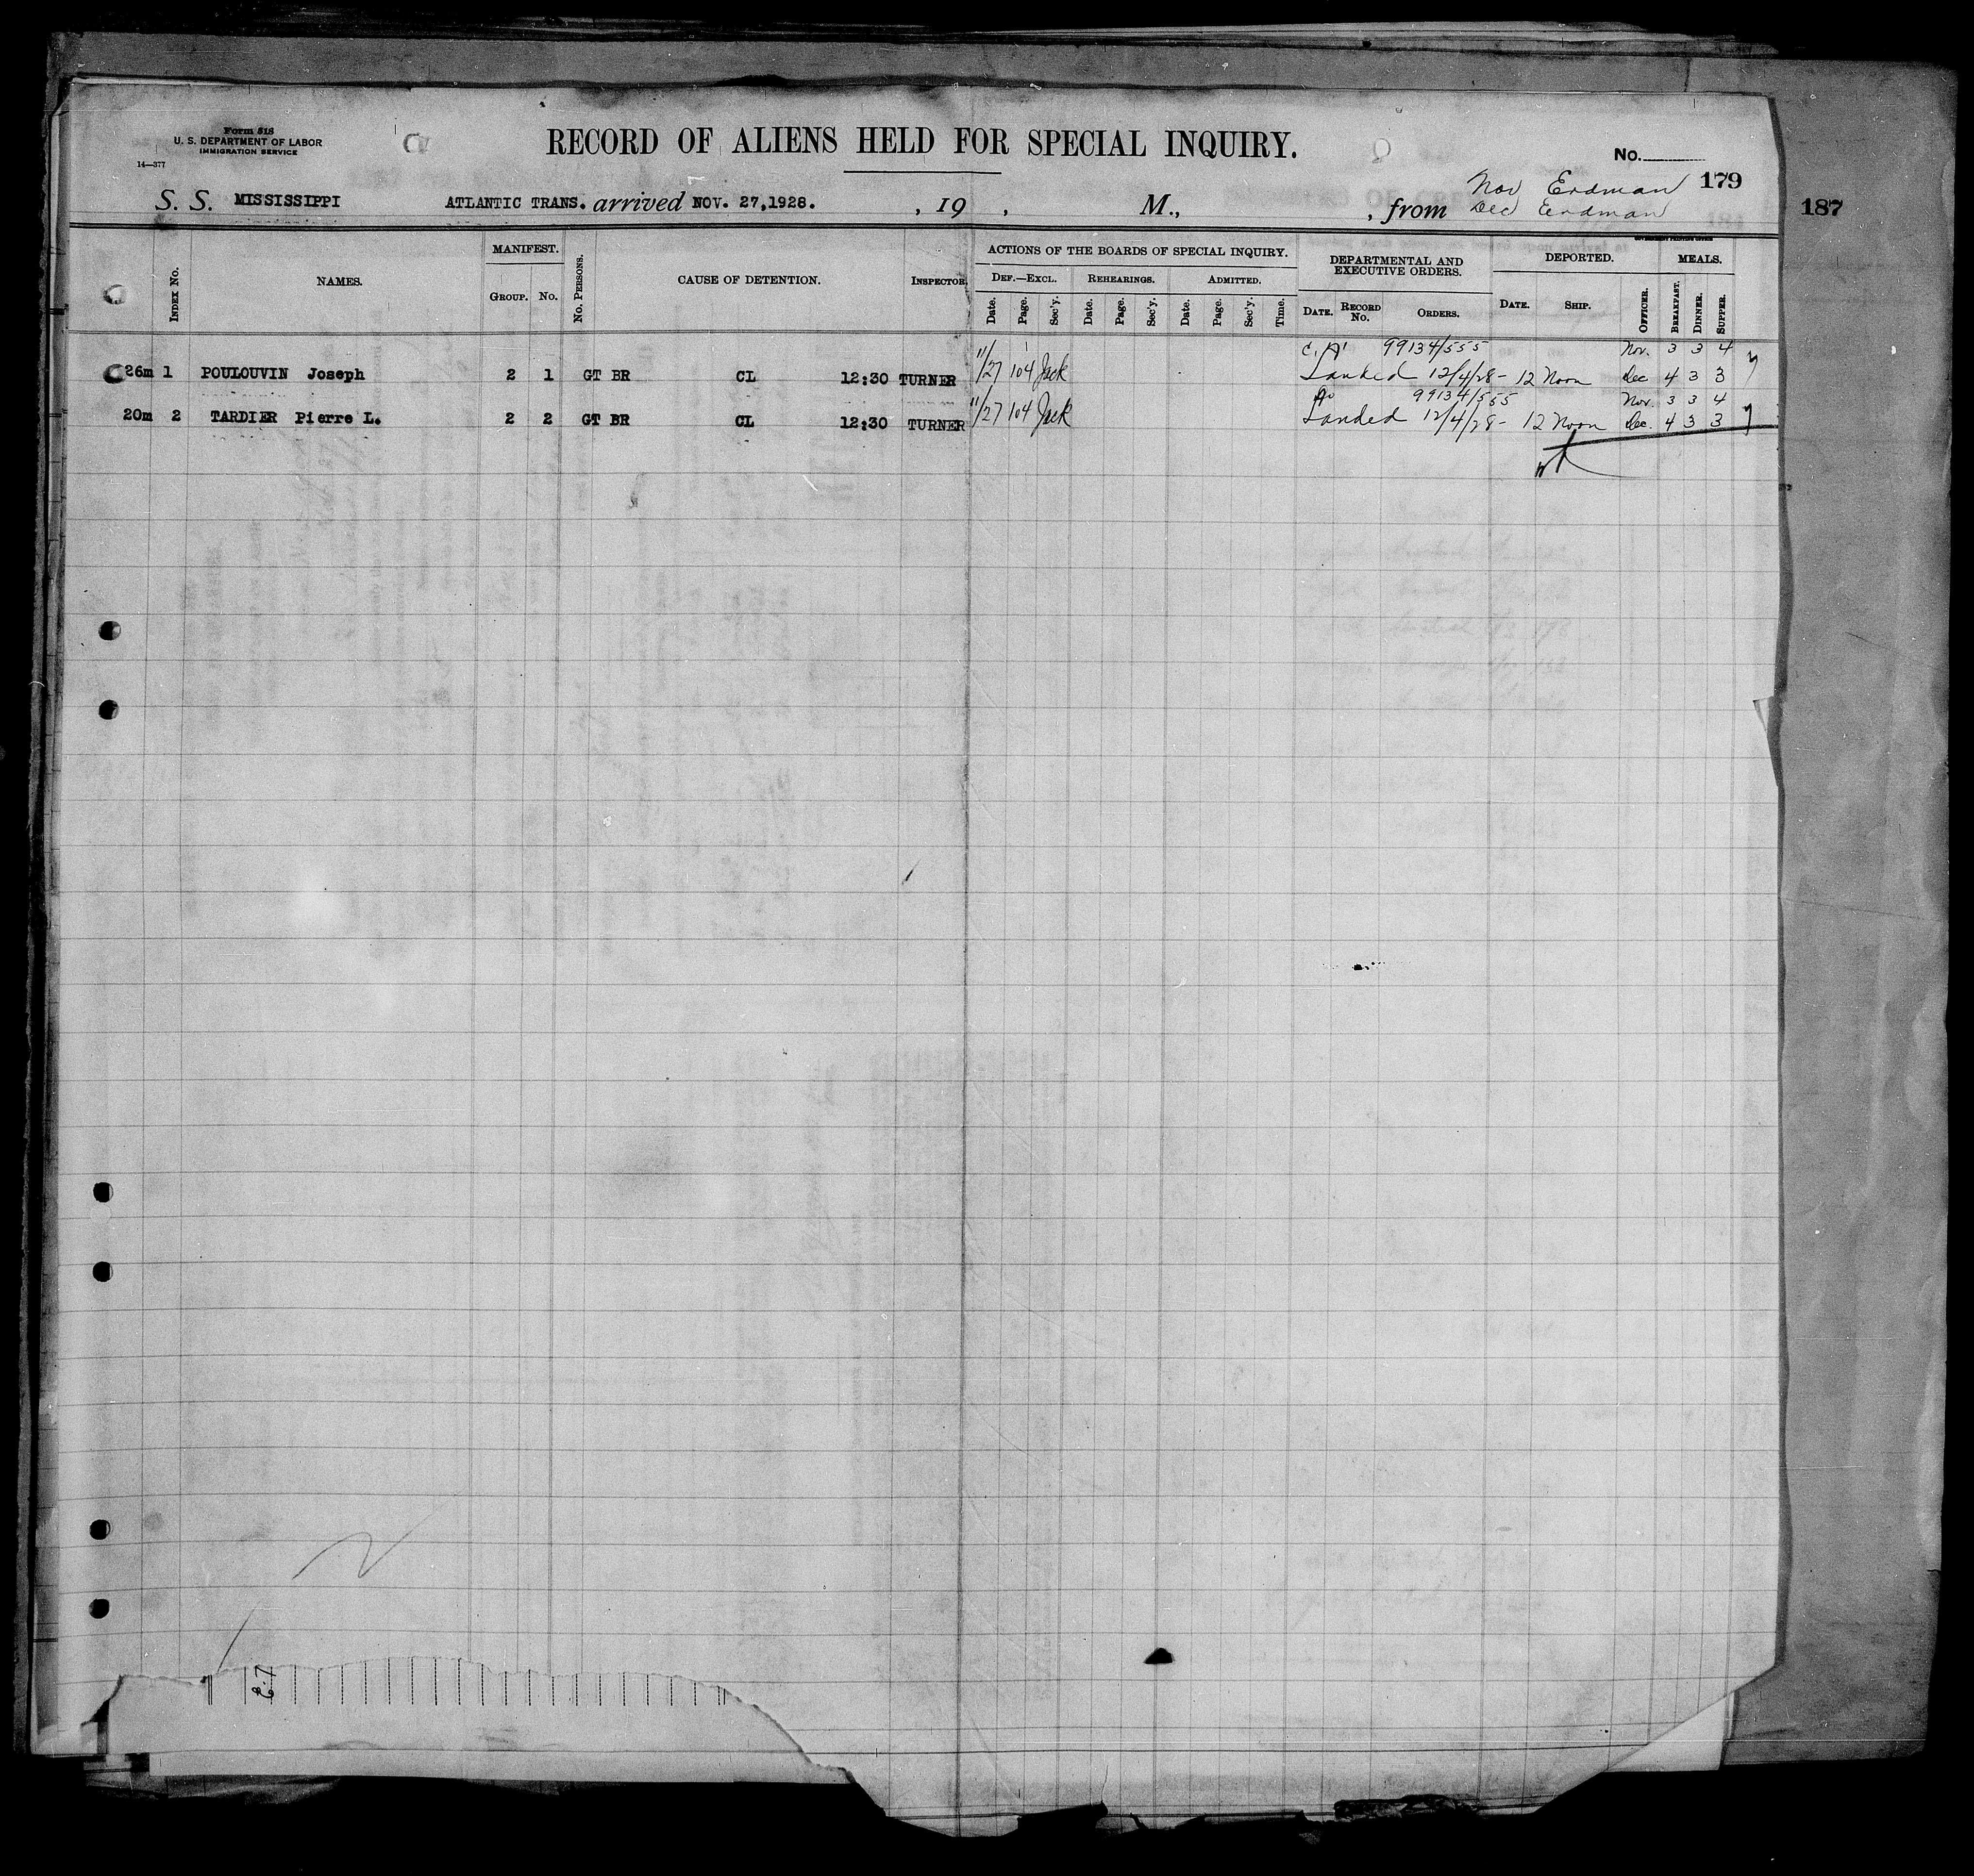 Form 518
U. S. DEPARTMENT OF LABOR
IMMIGRATION SERVICE
14—377
RECORD OF ALIENS HELD FOR SPECIAL INQUIRY.
No.
179
187
Nov Erdman
Dec Erdman
S. S. MISSISSIPPI ATLANTIC TRANS. arrived NOV. 27,1928. , 19 , M., , from
GOVERNMENT PRINTING OFFICE
INDEX NO. NAMES. MANIFEST. NO. PERSONS. CAUSE OF DETENTION. INSPECTOR. ACTIONS OF THE BOARDS OF SPECIAL INQUIRY. DEPARTMENTAL AND EXECUTIVE ORDERS. DEPORTED. MEALS.
GROUP. NO. DEF.—EXCL. REHEARINGS. ADMITTED.
Date. Page. Sec'y. Date. Page. Sec'y. Date. Page. Sec'y. Time. DATE. RECORD NO. ORDERS. DATE. SHIP. OFFICER. BREAKFAST. DINNER. SUPPER.
99134/555 Nov. 3 3 4
26m 1 POULOUVIN Joseph 2 1 GT BR CL 12:30 TURNER 11/27 104 Jack Landed 12/4/28 - 12 Noon Dec 4 3 3
99134/555 Nov. 3 3 4
20m 2 TARDIER Pierre L. 2 2 GT BR CL 12:30 TURNER 11/27 104 Jack Landed 12/4/28 - 12 Noon Dec. 4 3 3